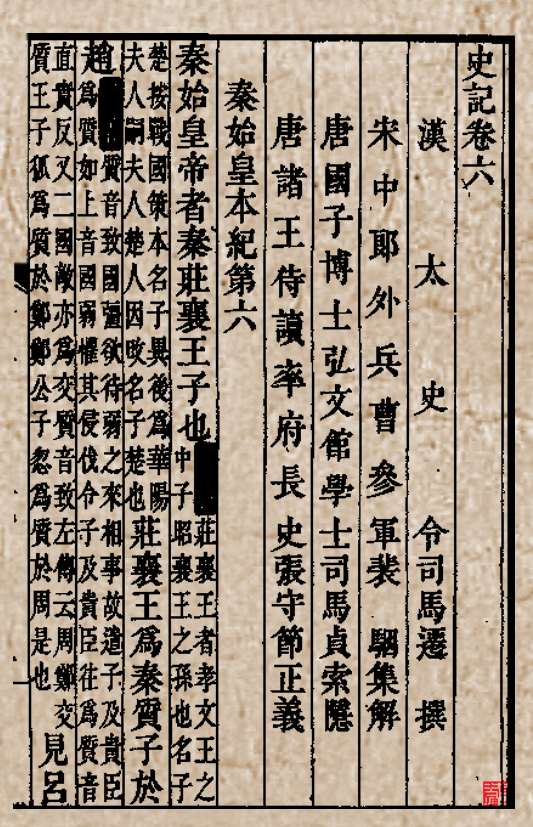 史記卷六
漢太史令司馬遷撰
宋中郎外兵曹參軍裴駰集解
唐國子博士弘文館學士司馬貞索隱
唐諸王侍讀率府長史張守節正義
秦始皇本紀第六
秦始皇帝者秦莊襄王子也
莊襄王者孝文王之
中子昭襄王之孫也名子
楚按戰國策本名子異後爲華陽
夫人嗣夫人楚人因改名子楚也
莊襄王爲秦質子於
趙
質音致國彊欲待弱之來相事故遣子及貴臣
爲質如上音國弱懼其侵伐令子及貴臣往爲質音
直實反又二國敵亦爲交質音致左傳云周鄭交
質王子狐爲質於鄭鄭公子忽爲質於周是也
見呂